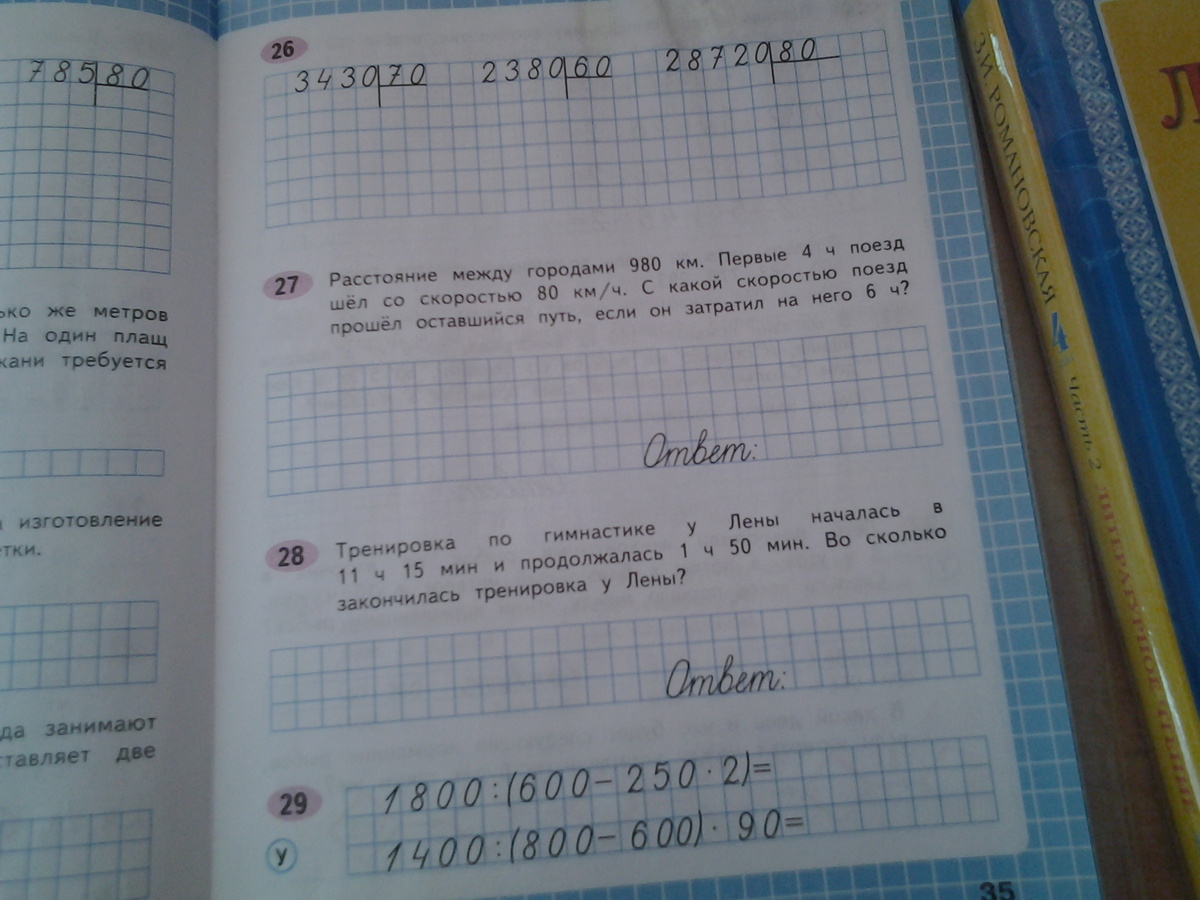 785 80
ько же метров
На один плащ
кани требуется
изготовление
етки.
да занимают
ставляет две
26
3430 70 2380 60 28720 80
27
Расстояние между городами 980 км. Первые 4 ч поезд
шёл со скоростью 80 км/ч. С какой скоростью поезд
прошёл оставшийся путь, если он затратил на него 6 ч?
Ответ:
28
Тренировка по гимнастике у Лены началась в
11 ч 15 мин и продолжалась 1 ч 50 мин. Во сколько
закончилась тренировка у Лены?
Ответ:
29
1800:(600-250·2)=
У
1400:(800-600)·90=
35
З.И. РОМАНОВСКАЯ 4 часть 2 ЛИТЕРАТУРНОЕ ЧТЕНИЕ
Л